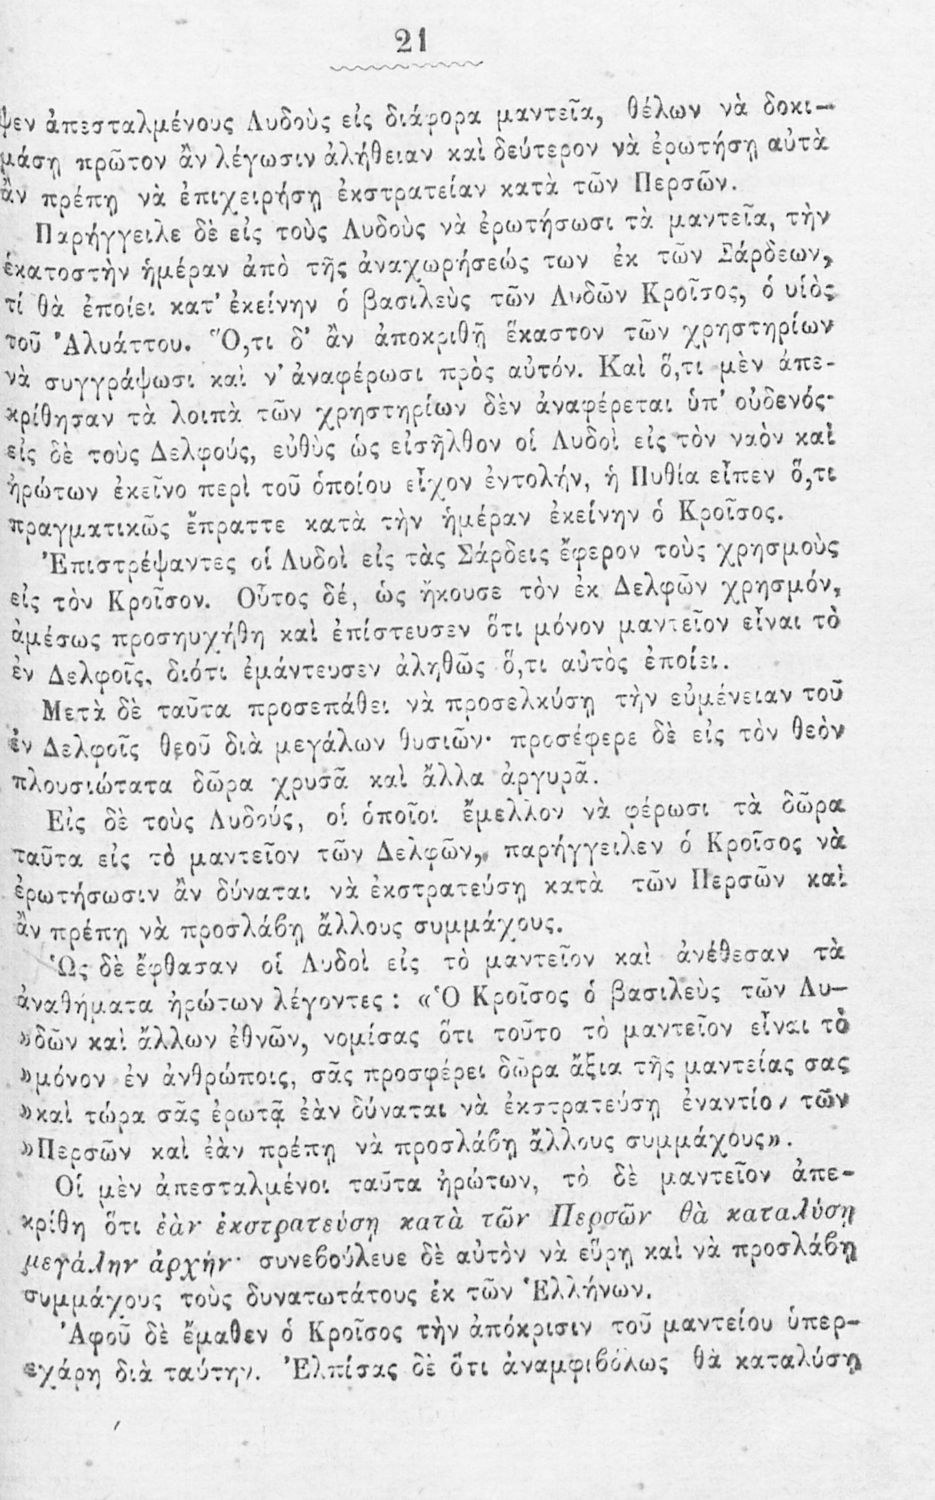 21
ψεν ἀπεσταλμένους Λυδοὺς εἰς διάφορα μαντεῖα, θέλων νὰ δοκι-
μάσῃ πρῶτον ἂν λέγωσιν ἀλήθειαν καὶ δεύτερον νὰ ἐρωτήσῃ αὐτὰ
ἂν πρέπῃ νὰ ἐπιχειρήσῃ ἐκστρατείαν κατὰ τῶν Περσῶν.
Παρήγγειλε δὲ εἰς τοὺς Λυδοὺς νὰ ἐρωτήσωσι τὰ μαντεῖα, τὴν
ἑκατοστὴν ἡμέραν ἀπὸ τῆς ἀναχωρήσεώς των ἐκ τῶν Σάρδεων,
τί θὰ ἐποίει κατ' ἐκείνην ὁ βασιλεὺς τῶν Λυδῶν Κροῖσος, ὁ υἱὸς
τοῦ Ἀλυάττου. Ὅ,τι δ' ἂν ἀποκριθῇ ἕκαστον τῶν χρηστηρίων
νὰ συγγράψωσι καὶ ν' ἀναφέρωσι πρὸς αὐτόν. Καὶ ὅ,τι μὲν ἀπε-
κρίθησαν τὰ λοιπὰ τῶν χρηστηρίων δὲν ἀναφέρεται ὑπ' οὐδενός·
εἰς δὲ τοὺς Δελφούς, εὐθὺς ὡς εἰσῆλθον οἱ Λυδοὶ εἰς τὸν ναὸν καὶ
ἠρώτων ἐκεῖνο περὶ τοῦ ὁποίου εἶχον ἐντολήν, ἡ Πυθία εἶπεν ὅ,τι
πραγματικῶς ἔπραττε κατὰ τὴν ἡμέραν ἐκείνην ὁ Κροῖσος.
Ἐπιστρέψαντες οἱ Λυδοὶ εἰς τὰς Σάρδεις ἔφερον τοὺς χρησμοὺς
εἰς τὸν Κροῖσον. Οὗτος δέ, ὡς ἤκουσε τὸν ἐκ Δελφῶν χρησμόν,
ἀμέσως προσηυχήθη καὶ ἐπίστευσεν ὅτι μόνον μαντεῖον εἶναι τὸ
ἐν Δελφοῖς, διότι ἐμάντευσεν ἀληθῶς ὅ,τι αὐτὸς ἐποίει.
Μετὰ δὲ ταῦτα προσεπάθει νὰ προσελκύσῃ τὴν εὐμένειαν τοῦ
ἐν Δελφοῖς θεοῦ διὰ μεγάλων θυσιῶν· προσέφερε δὲ εἰς τὸν θεὸν
πλουσιώτατα δῶρα χρυσᾶ καὶ ἄλλα ἀργυρᾶ.
Εἰς δὲ τοὺς Λυδούς, οἱ ὁποῖοι ἔμελλον νὰ φέρωσι τὰ δῶρα
ταῦτα εἰς τὸ μαντεῖον τῶν Δελφῶν, παρήγγειλεν ὁ Κροῖσος νὰ
ἐρωτήσωσιν ἂν δύναται νὰ ἐκστρατεύσῃ κατὰ τῶν Περσῶν καὶ
ἂν πρέπῃ νὰ προσλάβῃ ἄλλους συμμάχους.
Ὡς δὲ ἔφθασαν οἱ Λυδοὶ εἰς τὸ μαντεῖον καὶ ἀνέθεσαν τὰ
ἀναθήματα ἠρώτων λέγοντες : «Ὁ Κροῖσος ὁ βασιλεὺς τῶν Λυ-
»δῶν καὶ ἄλλων ἐθνῶν, νομίσας ὅτι τοῦτο τὸ μαντεῖον εἶναι τὸ
»μόνον ἐν ἀνθρώποις, σᾶς προσφέρει δῶρα ἄξια τῆς μαντείας σας
»καὶ τώρα σᾶς ἐρωτᾷ ἐὰν δύναται νὰ ἐκστρατεύσῃ ἐναντίον τῶν
»Περσῶν καὶ ἐὰν πρέπῃ νὰ προσλάβῃ ἄλλους συμμάχους».
Οἱ μὲν ἀπεσταλμένοι ταῦτα ἠρώτων, τὸ δὲ μαντεῖον ἀπε-
κρίθη ὅτι ἐὰν ἐκστρατεύσῃ κατὰ τῶν Περσῶν θὰ καταλύσῃ
μεγάλην ἀρχήν· συνεβούλευε δὲ αὐτὸν νὰ εὕρῃ καὶ νὰ προσλάβῃ
συμμάχους τοὺς δυνατωτάτους ἐκ τῶν Ἑλλήνων.
Ἀφοῦ δὲ ἔμαθεν ὁ Κροῖσος τὴν ἀπόκρισιν τοῦ μαντείου ὑπερ-
εχάρη διὰ ταύτην. Ἐλπίσας δὲ ὅτι ἀναμφιβόλως θὰ καταλύσῃ